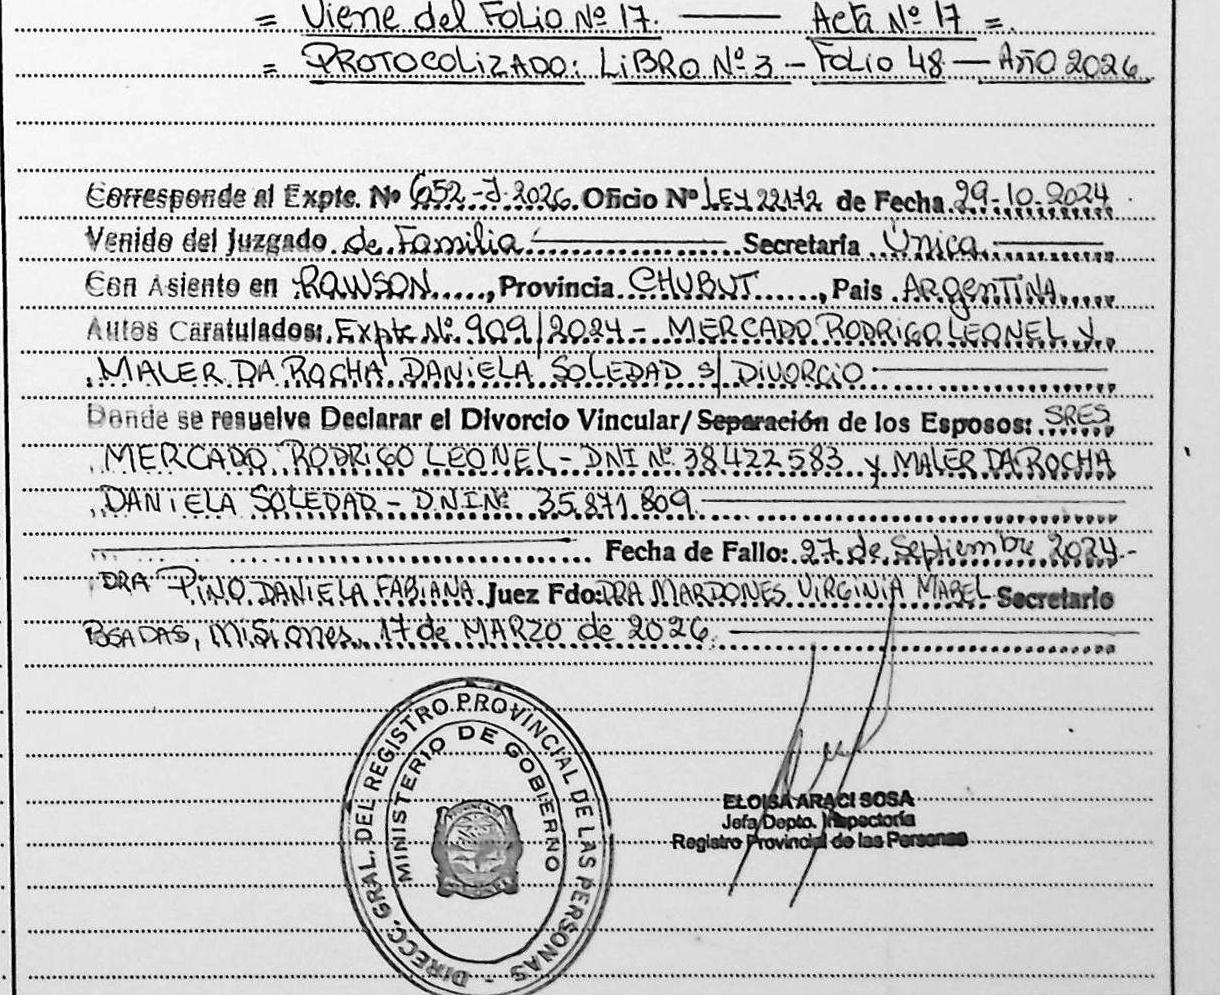 = Viene del Folio Nº 17. — Acta Nº 17 =.
= PROTOCOLIZADO: LIBRO Nº 3 – FOLIO 48 — AÑO 2026
Corresponde al Expte. Nº 652-J-2026. Oficio Nº LEY 22172 de Fecha 29-10-2024
Venido del Juzgado de Familia — Secretaría Única —
Con Asiento en RAWSON, Provincia CHUBUT, Pais ARGENTINA
Autos Caratulados: Expte Nº 909/2024 - MERCADO RODRIGO LEONEL y
MALER DA ROCHA DANIELA SOLEDAD S/ DIVORCIO —
Donde se resuelve Declarar el Divorcio Vincular/ Separación de los Esposos: SRES
MERCADO RODRIGO LEONEL - DNI Nº 38.422.583 y MALER DA ROCHA
DANIELA SOLEDAD - D.N.I Nº 35.871.809 —
— Fecha de Fallo: 27 de Septiembre 2024 -
DRA PINO DANIELA FABIANA Juez Fdo: DRA MARDONES VIRGINIA MABEL Secretario
POSADAS, MISIONES, 17 de MARZO de 2026. —
DIRECC. GRAL. DEL REGISTRO PROVINCIAL DE LAS PERSONAS -
MINISTERIO DE GOBIERNO
ELOISA ARACI SOSA
Jefa Depto. Inspectoría
Registro Provincial de las Personas